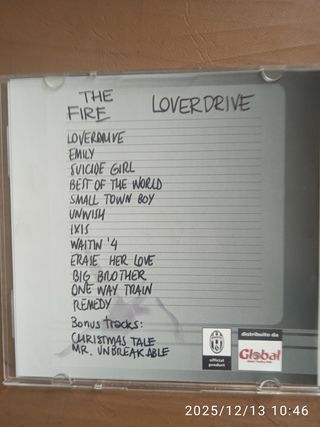 THE FIRE
LOVERDRIVE
LOVERDRIVE
EMILY
SUICIDE GIRL
BEST OF THE WORLD
SMALL TOWN BOY
UNWISH
IXIS
WAITIN '4
ERASE HER LOVE
BIG BROTHER
ONE WAY TRAIN
REMEDY
Bonus tracks:
CHRISTMAS TALE
MR. UNBREAKABLE
official
product
distribuito da
Global
2025/12/13 10:46